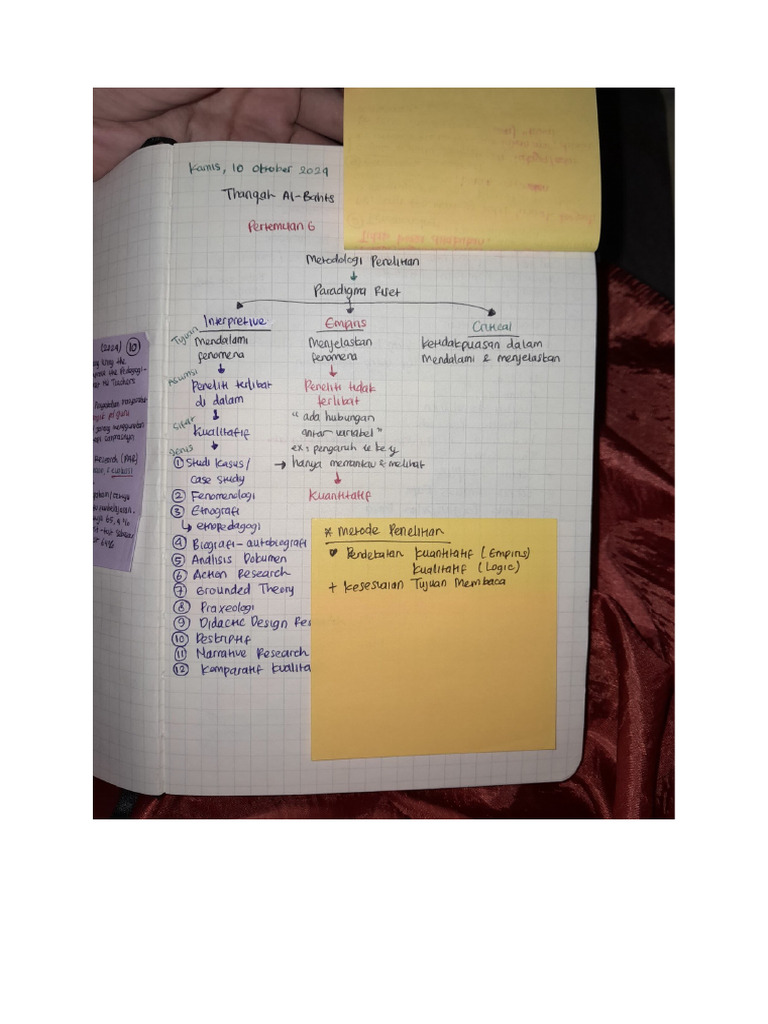 Kamis, 10 Oktober 2024
Thariqah Al-Bahts
Pertemuan 6
Metodologi Penelitian
Paradigma Riset
Interpretive
Tujuan
Mendalami
fenomena
Asumsi
Peneliti terlibat
di dalam
Sifat
Kualitatif
Jenis
① Studi Kasus/
case study
② Fenomenologi
③ Etnografi
↳ etnopedagogi
④ Biografi-autobiografi
⑤ Analisis Dokumen
⑥ Action Research
⑦ Grounded Theory
⑧ Praxeologi
⑨ Didactic Design Res
⑩ Deskriptif
⑪ Narrative Research
⑫ Komparatif Kualita
Empiris
Menjelaskan
fenomena
Peneliti tidak
terlibat
"ada hubungan
antar variabel"
ex: pengaruh x ke y
→ hanya memantau & melihat
Kuantitatif
Critical
Ketidakpuasan dalam
Mendalami & menjelaskan
* Metode Penelitian
Pendekatan Kuantitatif (Empiris)
Kualitatif (Logic)
+ Kesesuaian Tujuan Membaca
(2024) ⑩